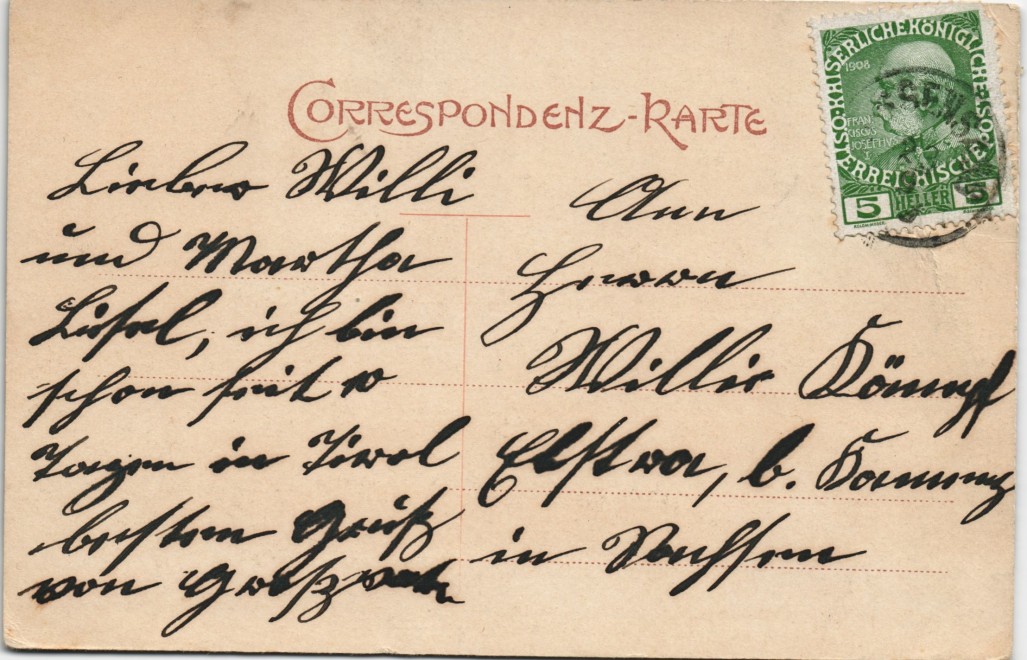 CORRESPONDENZ-KARTE
KAISERLICHE KÖNIGLICHE ÖSTERREICHISCHE
1908
FRAN
CISCUS
JOSEF I
5 HELLER 5
Lieber Willi
und Martha
ich bin
schon seit
Tagen in Tirol
besten Gruß
von Großvater
An
Herrn
Willi
Elstra, b. Kamenz
in Sachsen